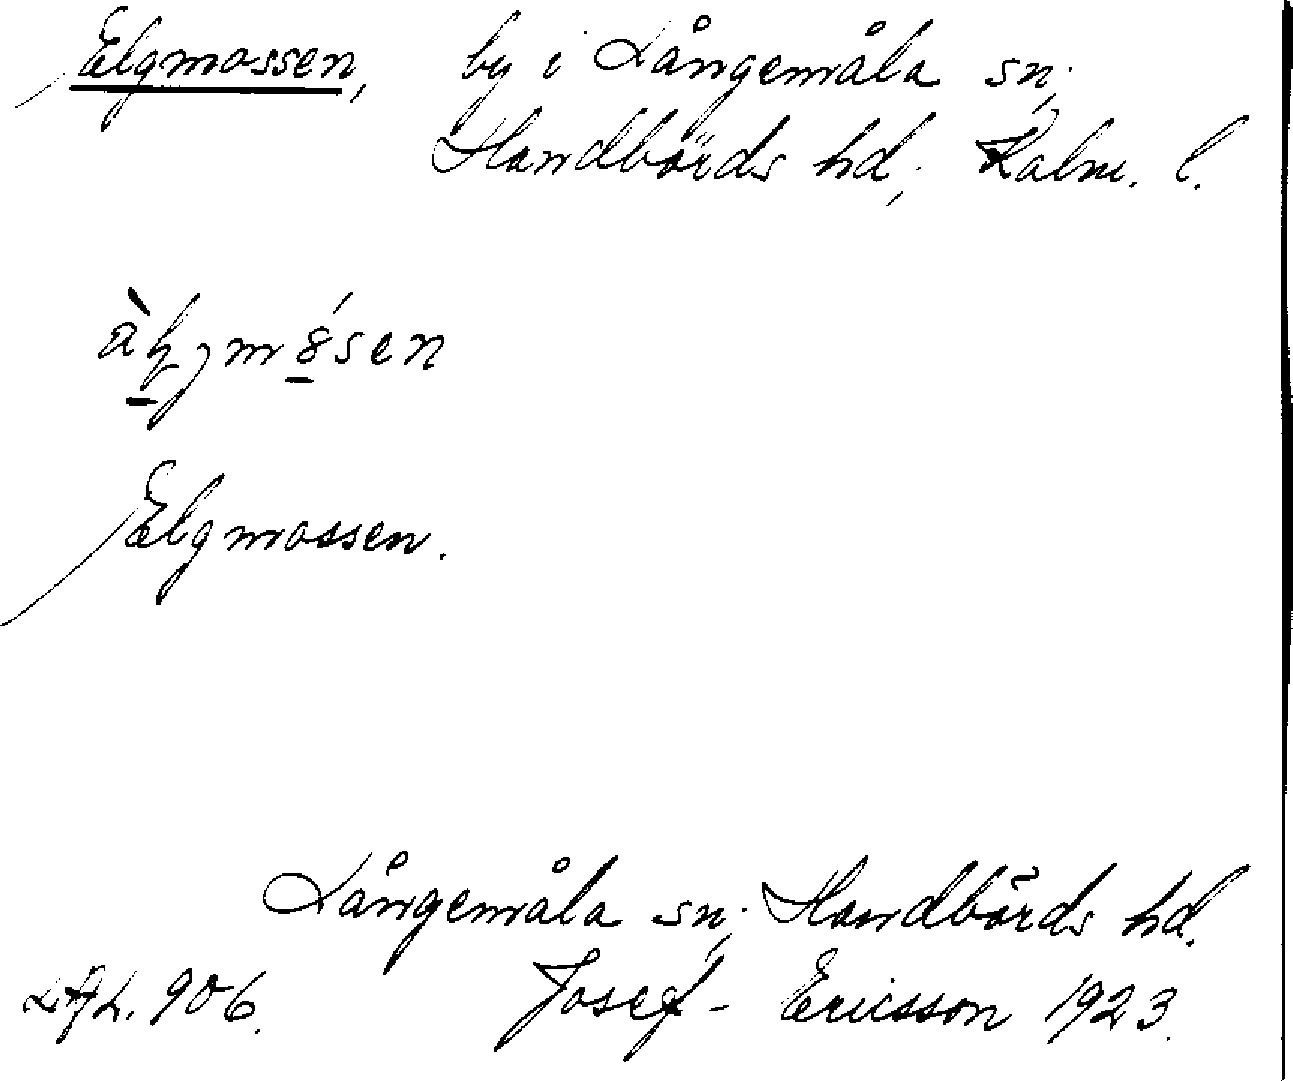 Elgmossen, by i Långemåla sn;
Handbörds hd; Kalm. l.
Elgmossen.
Långemåla sn; Handbörds hd.
906. Josef Ericsson 1923.